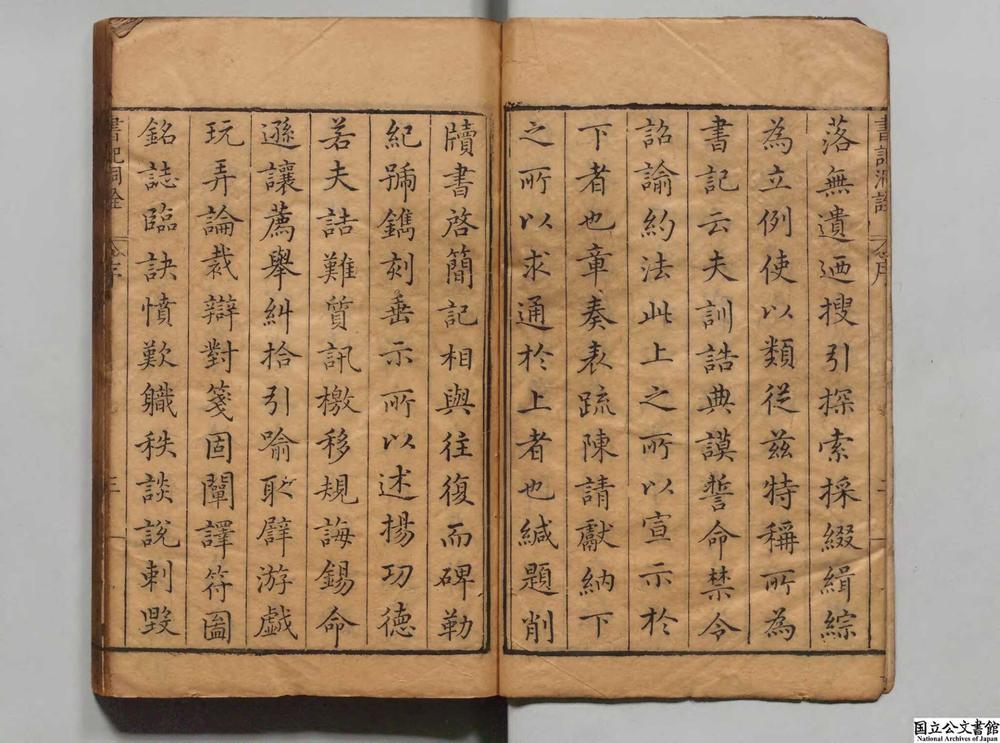 落無遺迺搜引探索採綴緝綜
為立例使以類從兹特稱所為
書記云夫訓誥典謨誓命禁令
詔諭約法此上之所以宣示於
下者也章奏表疏陳請獻納下
之所以求通於上者也緘題削
牘書啓簡記相與往復而碑勒
紀號鐫刻垂示所以述揚功德
若夫詰難質訊檄移規誨錫命
遜讓薦舉糾拾引喻取譬游戲
玩弄論裁辯對箋固闡譯符圖
銘誌臨訣憤歎職秩談說刺毀
書記洞詮
序
三
国立公文書館
National Archives of Japan